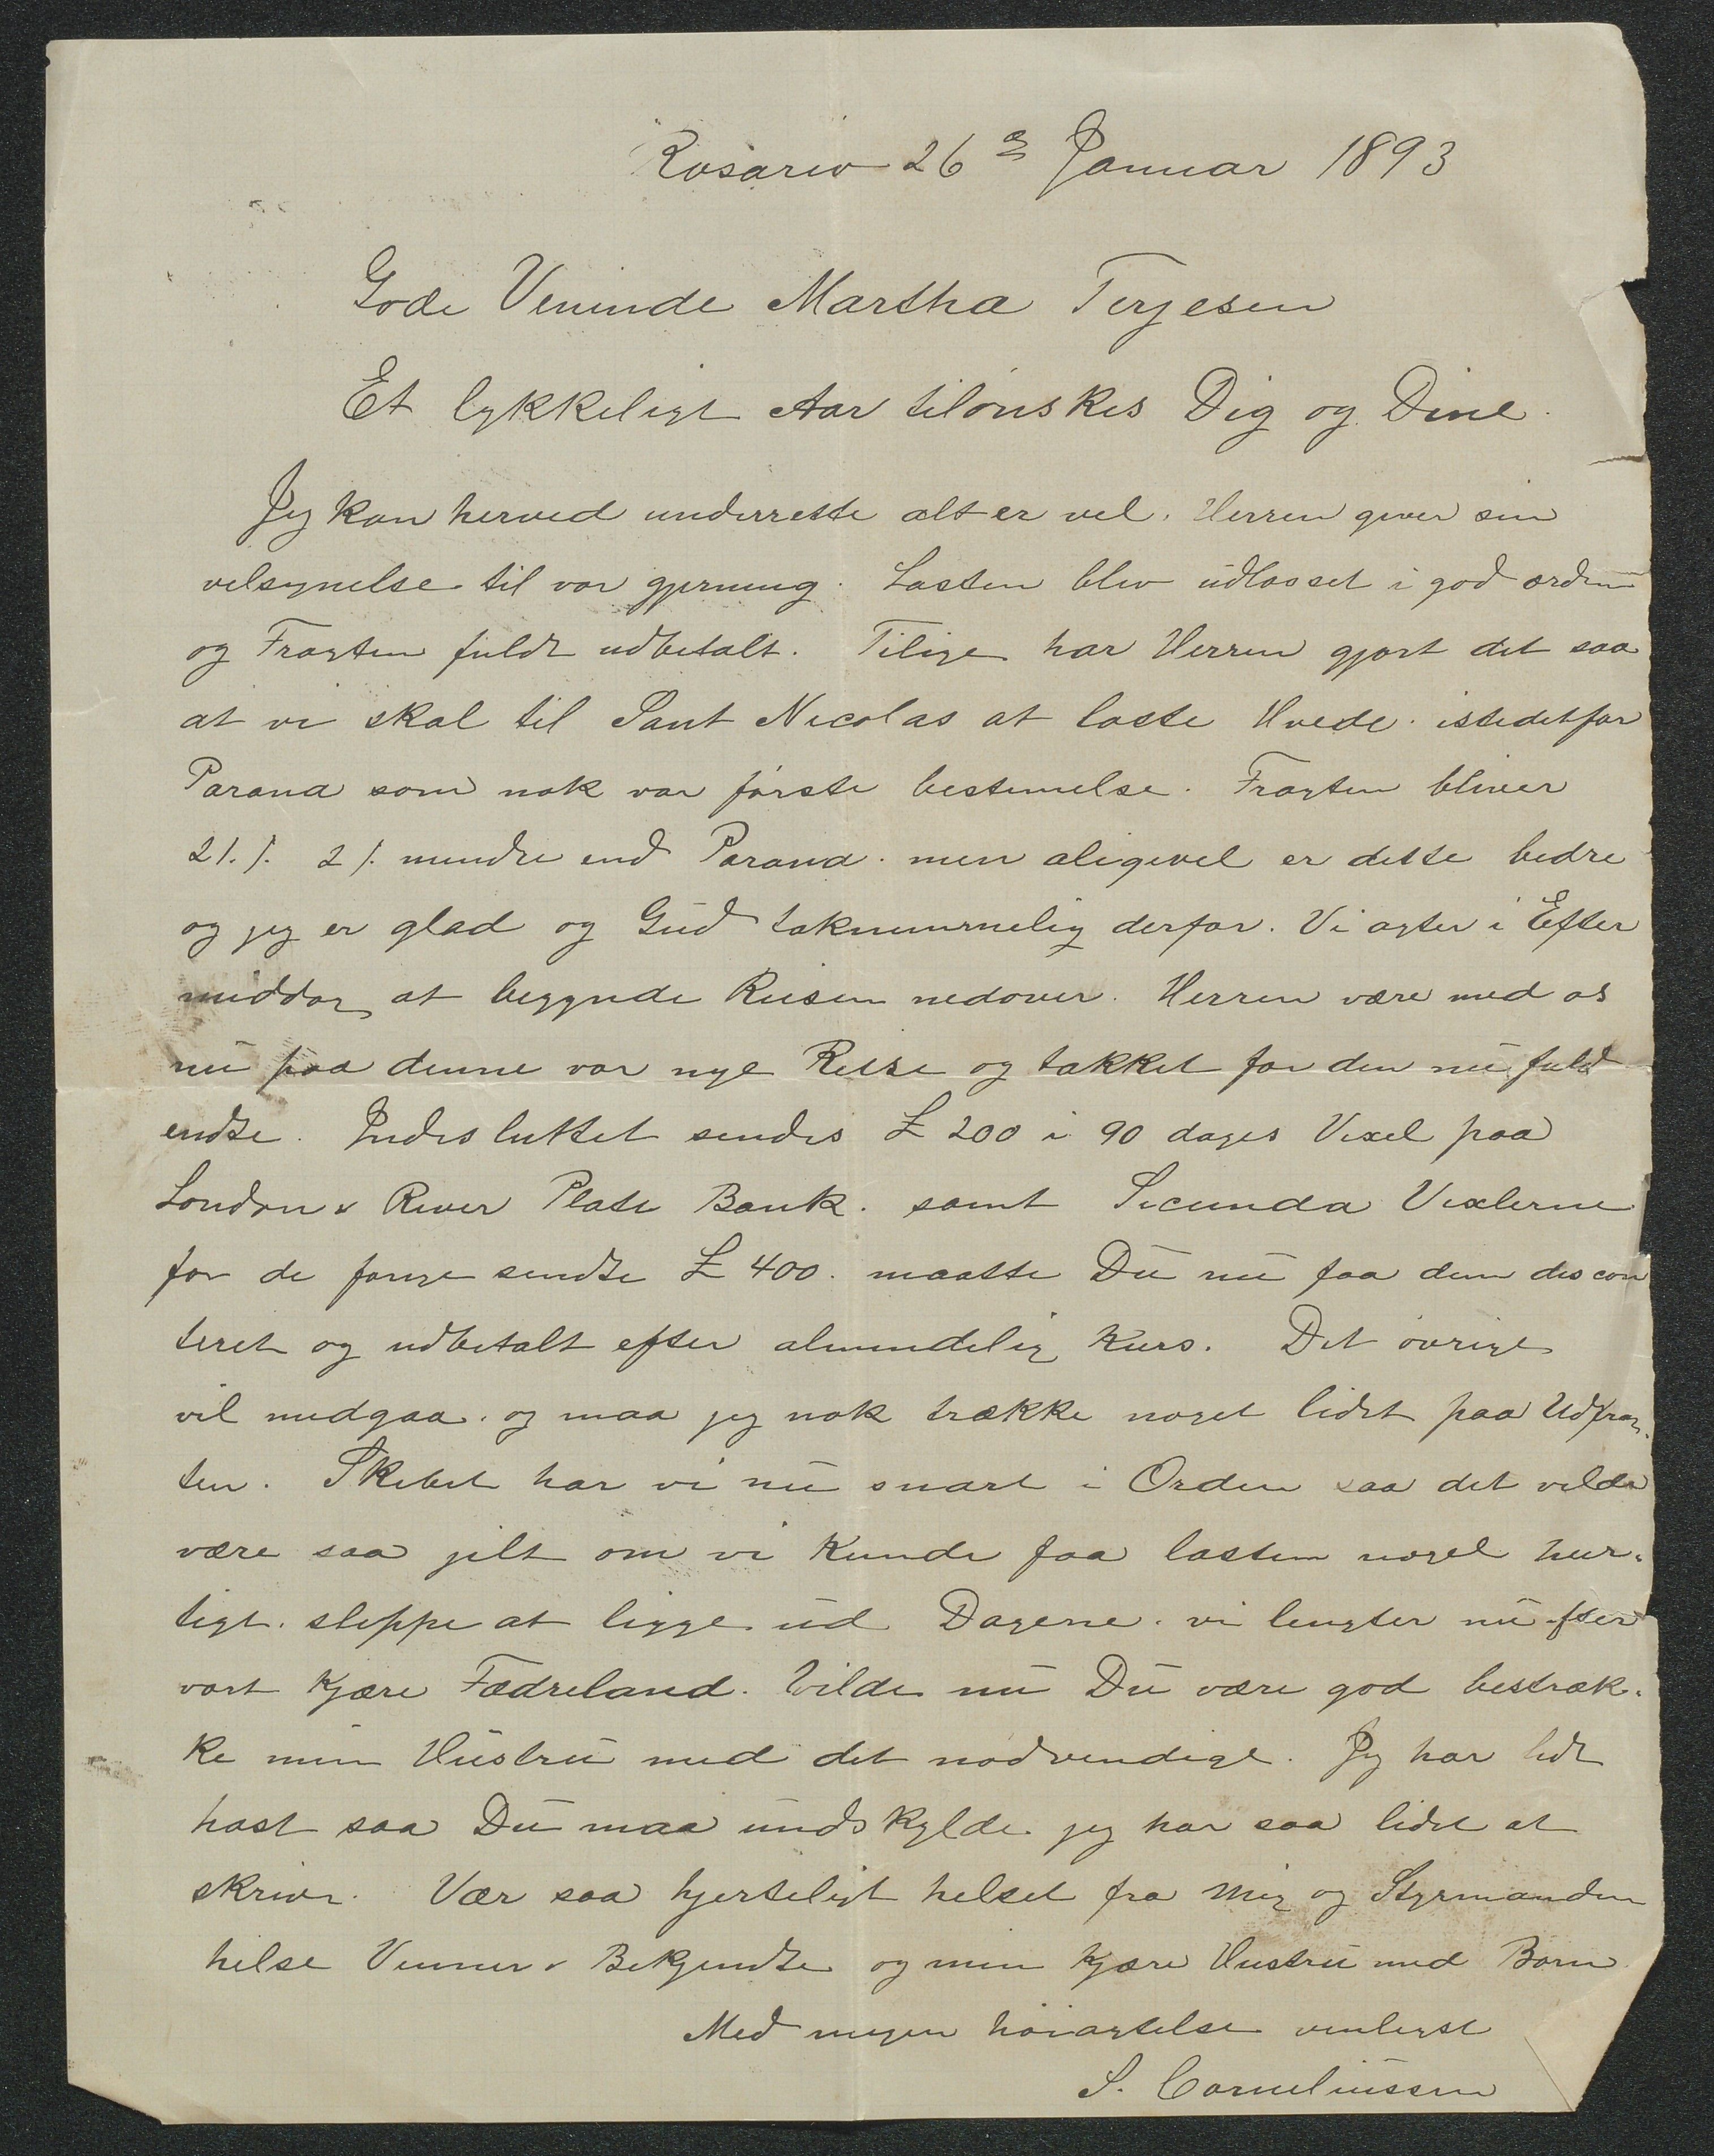 Rosario 26de Januar 1893
Gode Veninde Martha Terjesen
Et lykkeligt Aar tilønskes Dig og Dine.
Jeg kan herved underrette alt er vel. Herren giver sin
velsynelse til vor gjerning. Lasten blev udlosset i god orden
og Fragten fuldt udbetalt. Tilige har Herren gjort det saa
at vi skal til Sant Nicolas at laste Hvede istedetfor
Parana som nok var første bestemelse. Fragten bliver
21./. 2/. mindre end Parana. men aligevel er dette bedre
og jeg er glad og Gud taknemmelig derfor. Vi agter i Efter
middag at begynde Reisen nedover. Herren være med os
nu paa denne vor nye Reise og takket for den nu fuld
endte. Indesluttet sendes £ 200 i 90 dages Vexel paa
London & River Plate Bank. samt Secunda Vexlerne
for de forige sendte £ 400. maatte Du nu faa dem discon
teret og udbetalt efter almindelig Kurs. Det øvrige
vil medgaa. og maa jeg nok trække noget lidet paa Udfrag-
ten. Skibet har vi nu snart i Orden saa det vilde
være saa gilt om vi kunde faa lasten noget hur-
tigt. sleppe at ligge ud Dagene. vi lengter nu efter
vort kjære Fædreland. Vilde nu Du være god bestræk-
ke min Hustru med det nødvendige. Jeg har lidt
hast saa Du maa undskylde jeg har saa lidet at
skrive. Vær saa hjerteligt helset fra mig og Styrmanden
hilse Venner & Bekjendte og min kjære Hustru med Børn
Med megen høiagtelse venligst
S. Corneliussen